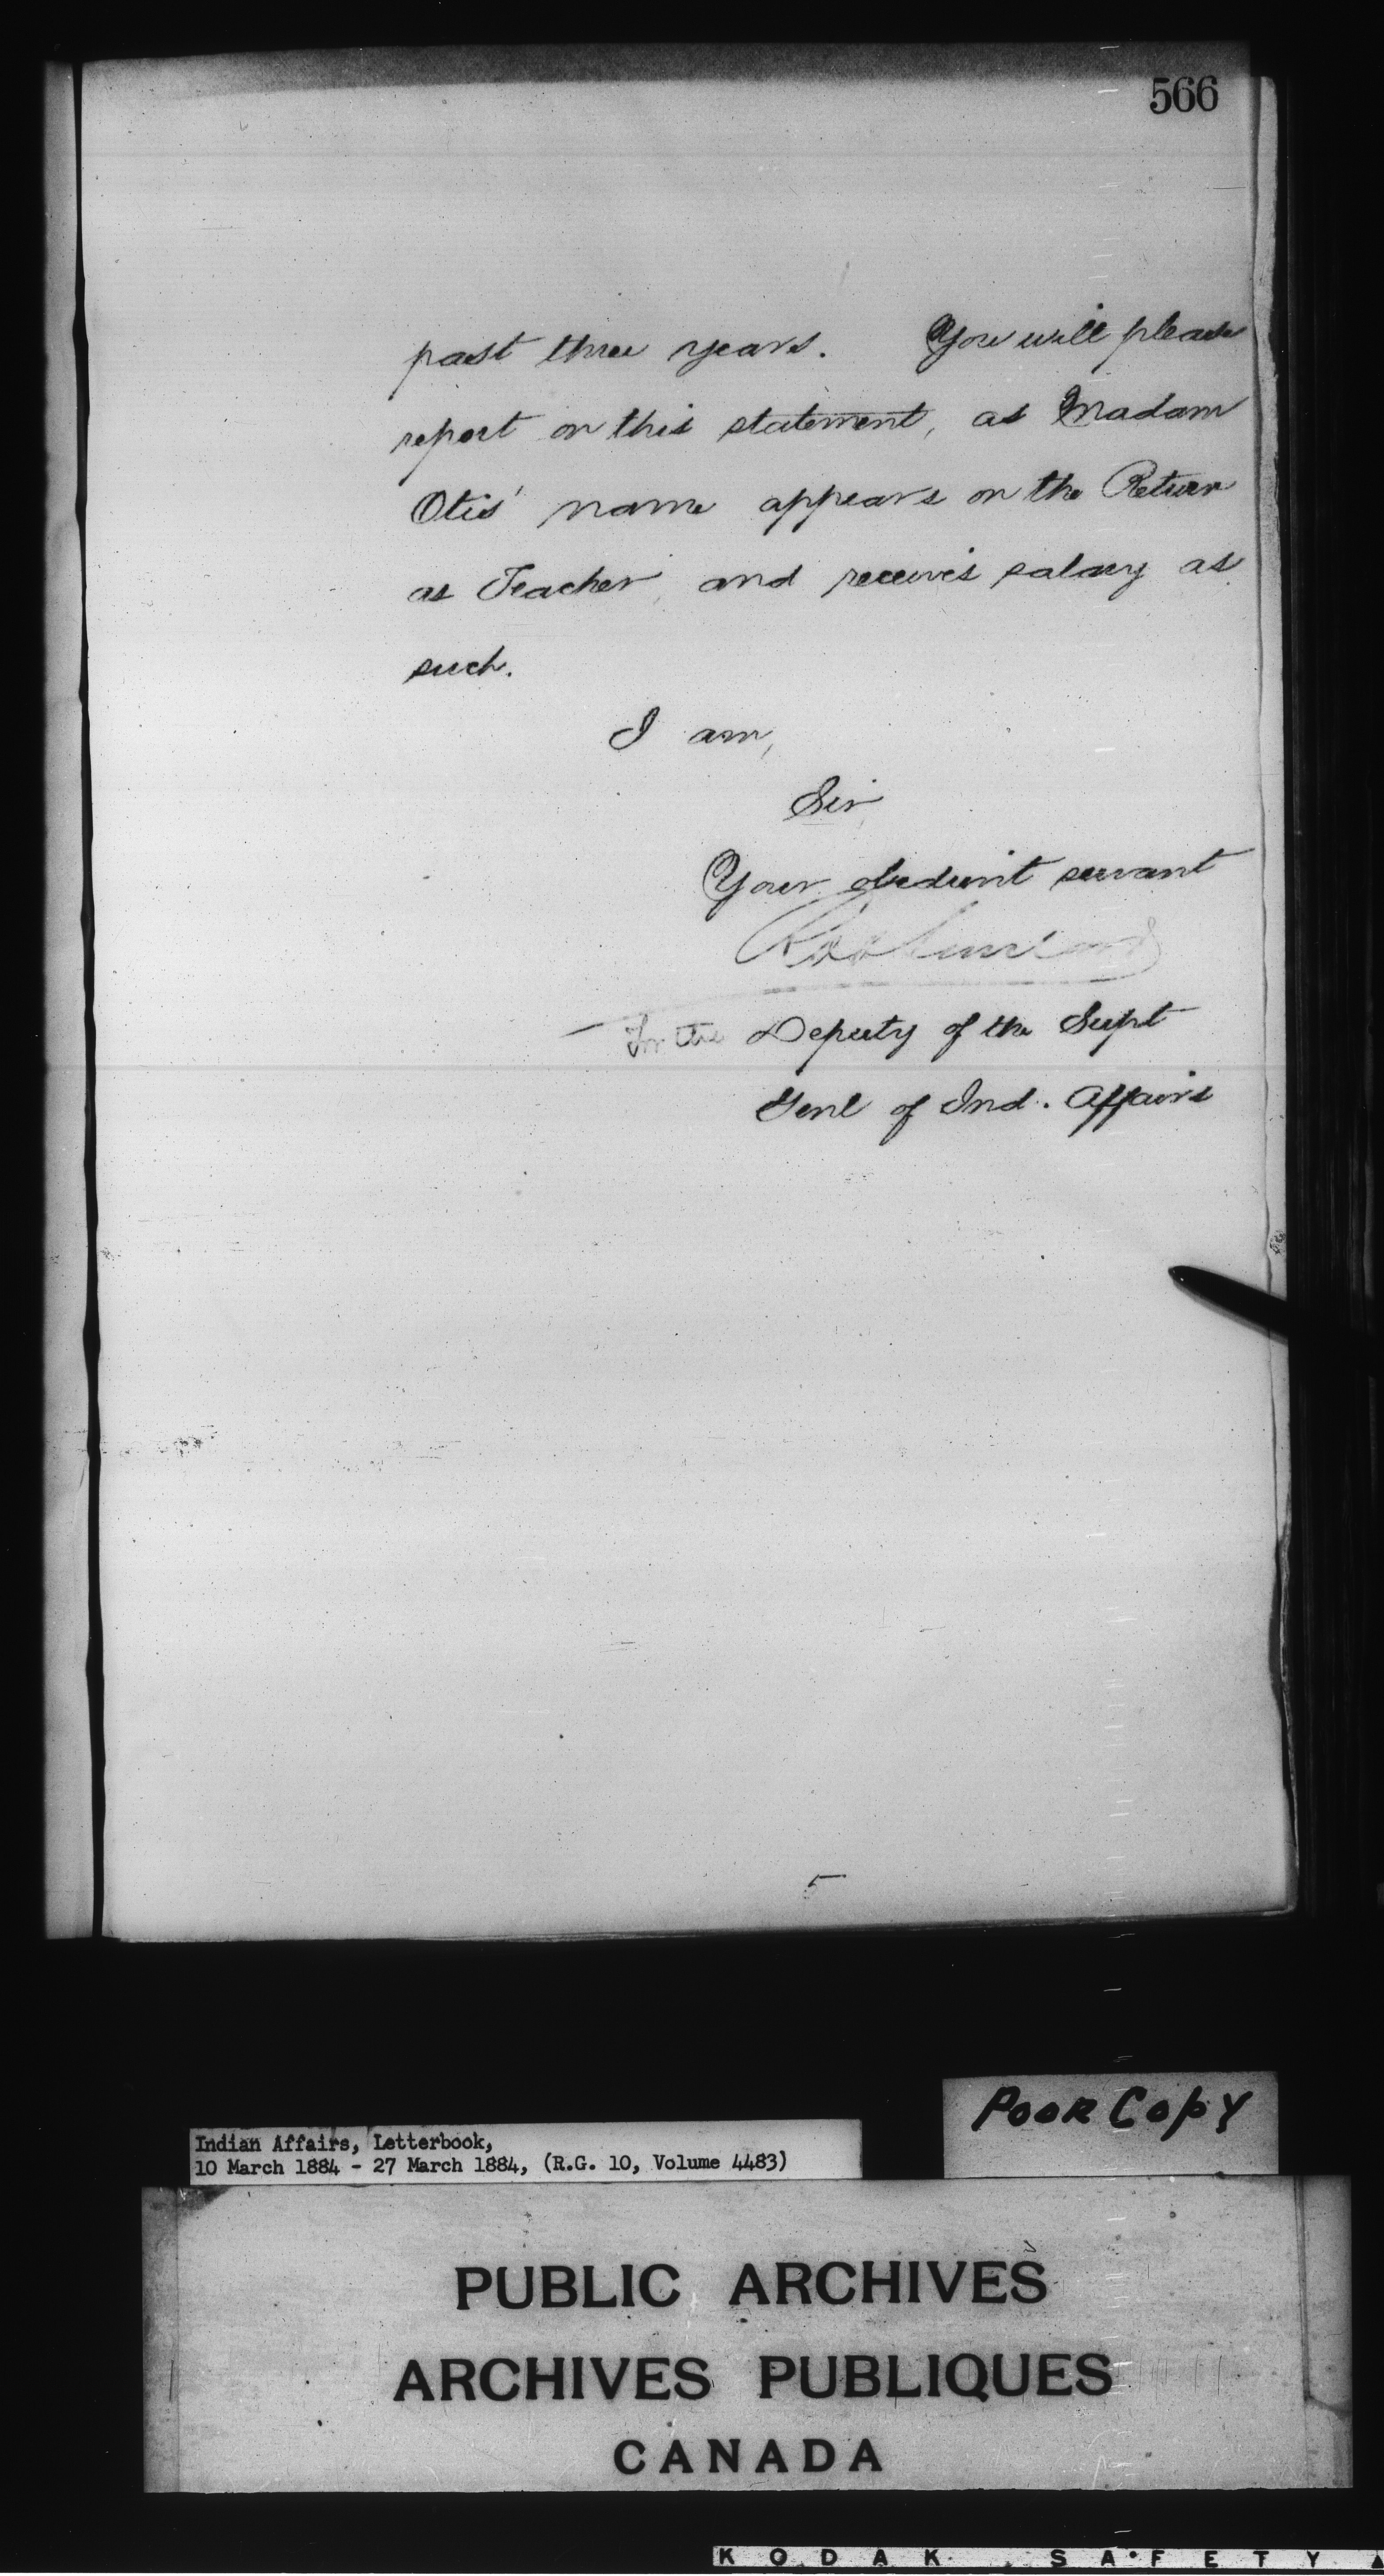 566
past three years. You will please
report on this statement, as Madam
Otis' name appears on the Return
as Teacher, and receives salary as
such.
I am,
Sir,
Your obedient servant
For the Deputy of the Supt
Genl of Ind. Affairs
Poor Copy
Indian Affairs, Letterbook,
10 March 1884 - 27 March 1884, (R.G. 10, Volume 4483)
PUBLIC ARCHIVES
ARCHIVES PUBLIQUES
CANADA
KODAK SAFETY